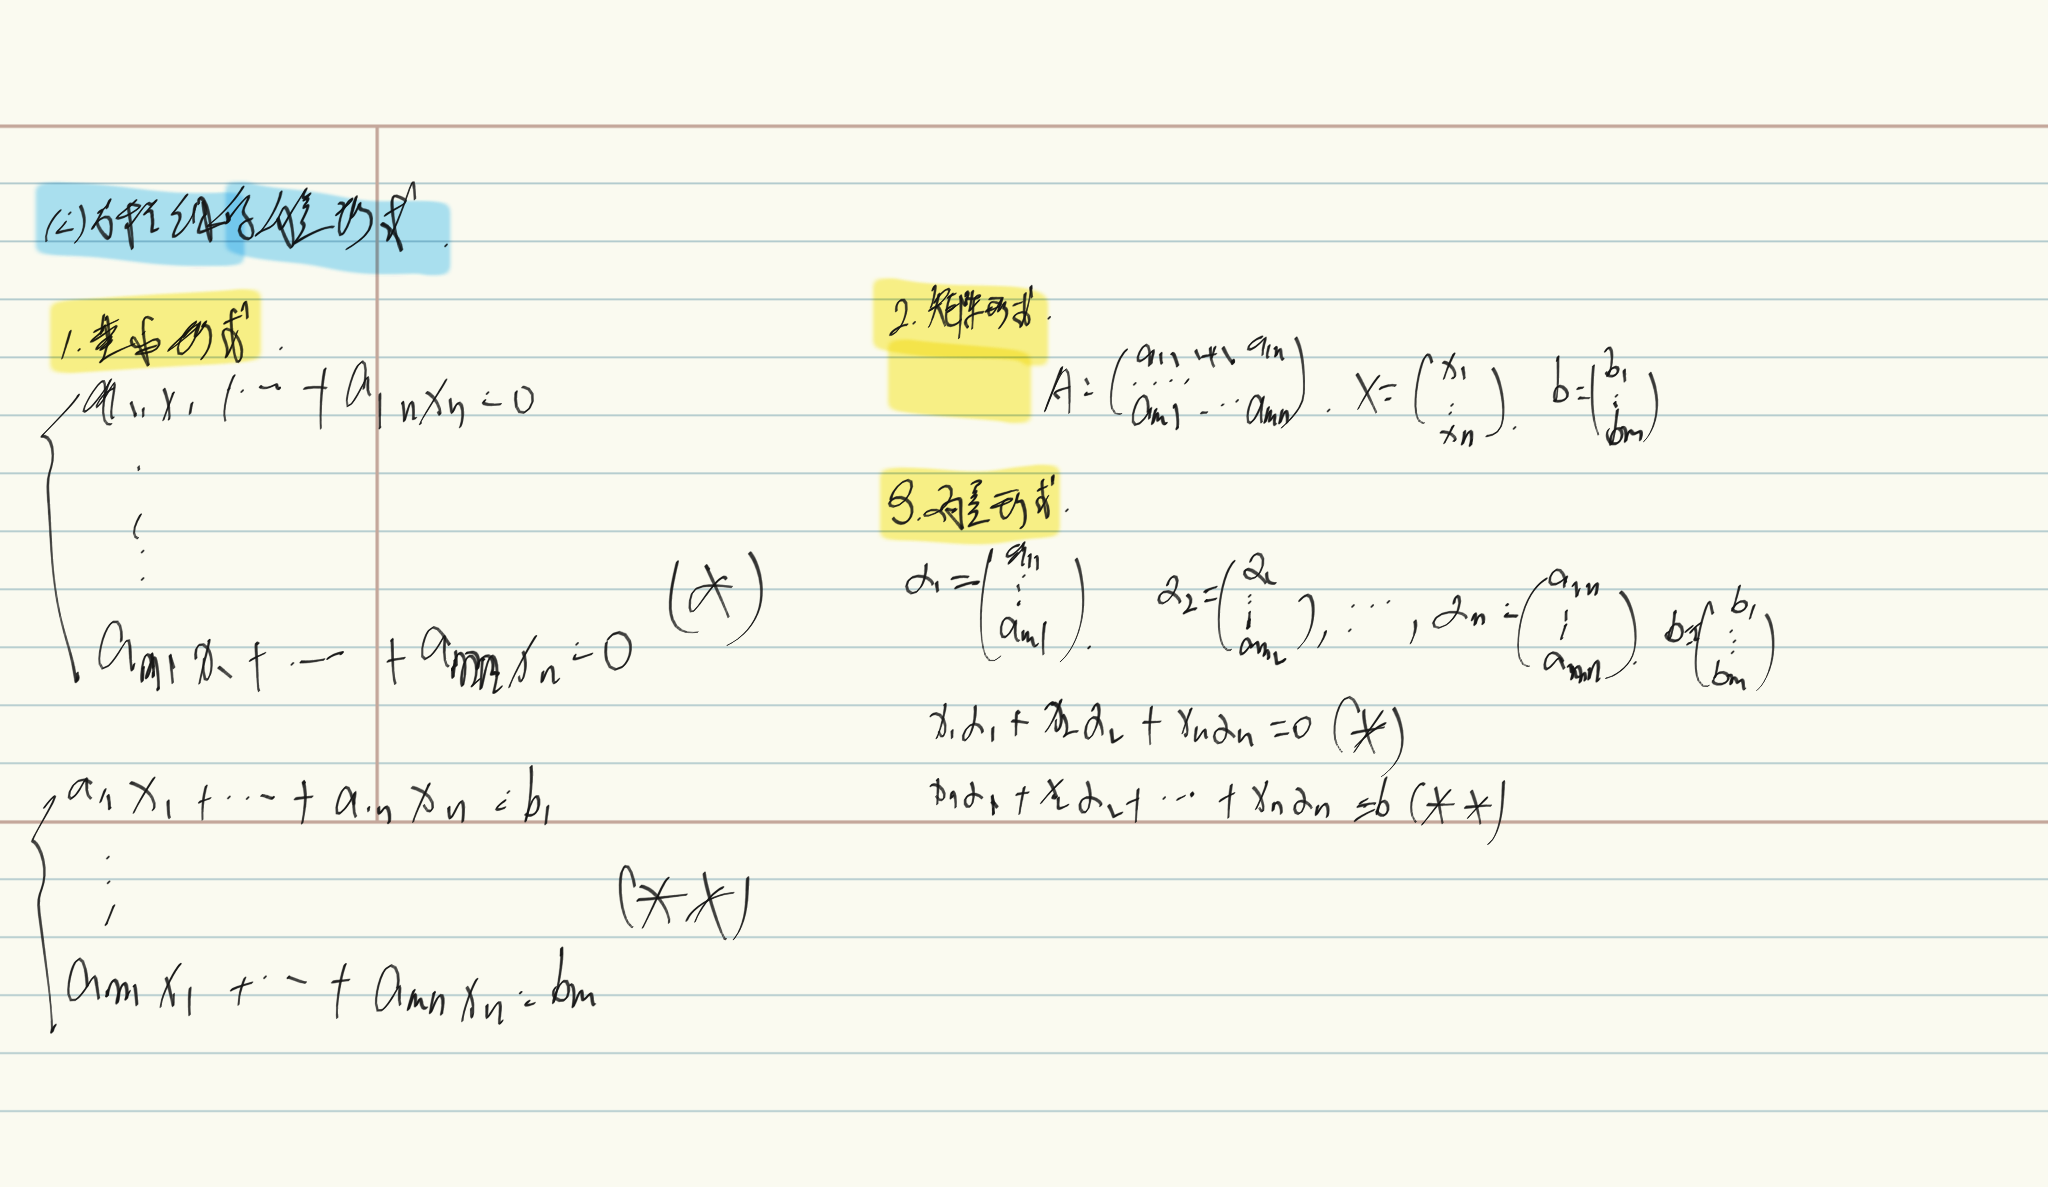 (二)方程组的形式.
1.基本形式.
a₁₁x₁+⋯+a₁ₙxₙ=0
⋮
aₘ₁x₁+⋯+aₘₙxₙ=0 (*)
a₁₁x₁+⋯+a₁ₙxₙ=b₁
⋮ (**)
aₘ₁x₁+⋯+aₘₙxₙ=bₘ
2.矩阵形式.
A=(a₁₁ ⋯ a₁ₙ ⋯ aₘ₁ ⋯ aₘₙ). X=(x₁ ⋮ xₙ). b=(b₁ ⋮ bₘ)
3.向量形式.
α₁=(a₁₁ ⋮ aₘ₁). α₂=( ⋮ aₘ₂), ⋯, αₙ=(a₁ₙ ⋮ aₘₙ). b=(b₁ ⋮ bₘ)
x₁α₁+x₂α₂+xₙαₙ=0 (*)
x₁α₁+x₂α₂+⋯+xₙαₙ=b (**)